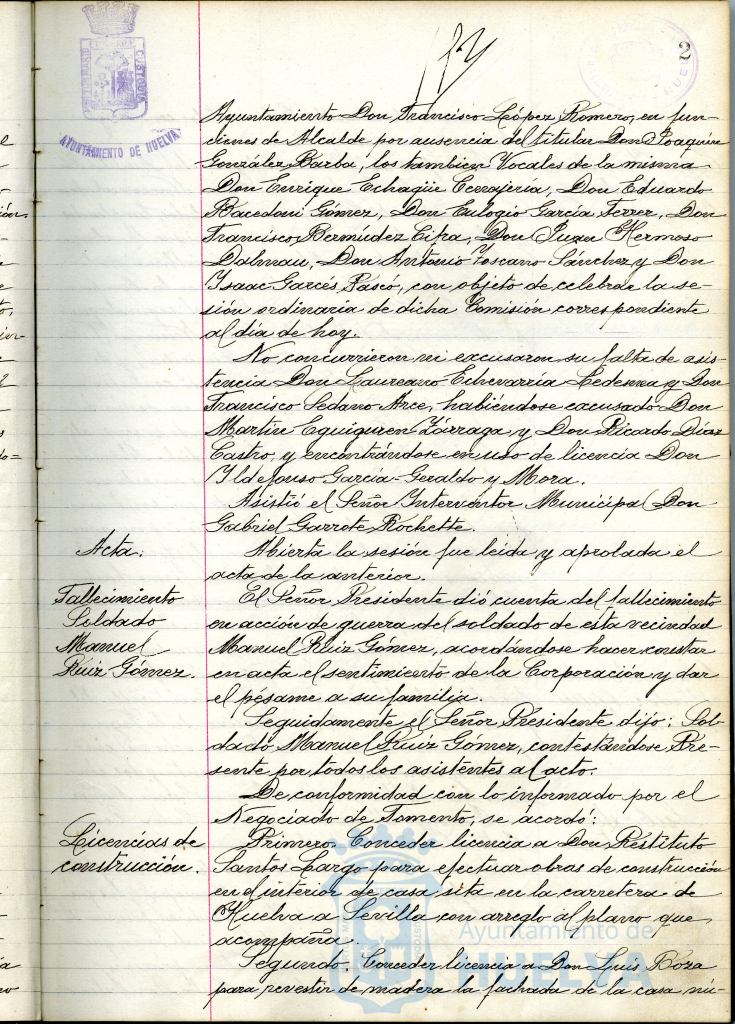 2
AYUNTAMIENTO DE HUELVA
Ayuntamiento Don Francisco López Romero, en fun-
ciones de Alcalde por ausencia del titular Don Joaquín
González Barba, los tambien Vocales de la misma
Don Enrique Echagüe Don Eduardo
Bacedoni Gómez, Don Eulogio García Ferrer, Don
Francisco Bermúdez Cifra, Don Juan Hermoso
Dalmau, Don Antonio Toscano Sánchez y Don
Isaac Garcés Pascó, con objeto de celebrar la se-
sión ordinaria de dicha Comisión correspondiente
al día de hoy.
No concurrieron ni excusaron su falta de asis-
tencia Don Laureano Echevarría Ledesma y Don
Francisco Sedano Arce, habiéndose excusado Don
Martín Eguiguren Zárraga y Don Ricardo Díaz
Castro, y encontrándose en uso de licencia Don
Ildefonso García-Geraldo y Mora.
Asistió el Señor Interventor Municipal Don
Gabriel Garrote Rochette.
Acta.
Abierta la sesión fue leída y aprobada el
acta de la anterior.
Fallecimiento
Soldado
Manuel
Ruiz Gómez.
El Señor Presidente dió cuenta del fallecimiento
en acción de guerra del soldado de esta vecindad
Manuel Ruiz Gómez, acordándose hacer constar
en acta el sentimiento de la Corporación y dar
el pésame a su familia.
Seguidamente el Señor Presidente dijo: Sol-
dado Manuel Ruiz Gómez, contestándose Pre-
sente por todos los asistentes al acto.
De conformidad con lo informado por el
Negociado de Fomento, se acordó:
Licencias de
construcción.
Primero. Conceder licencia a Don Restituto
Santos Largo para efectuar obras de construcción
en el interior de casa sita en la carretera de
Huelva a Sevilla con arreglo al plano que
acompaña.
Segundo. Conceder licencia a Don Luis Roza
para revestir de madera la fachada de la casa nú-
Ayuntamiento de
HUELVA